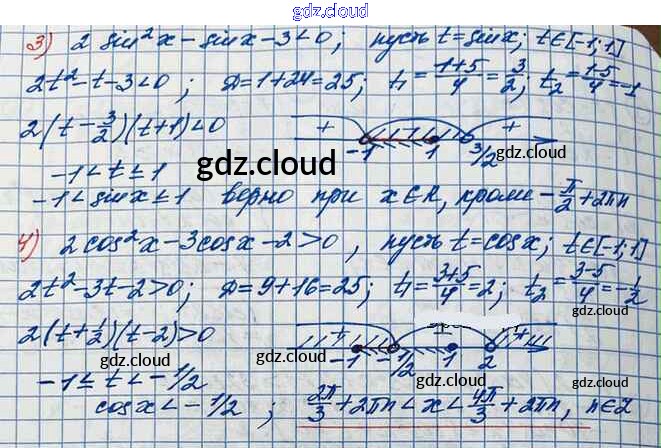 gdz.cloud
3) 2 sin²x - sinx - 3 < 0; пусть t = sinx; t∈[-1;1]
2t² - t - 3 < 0; D = 1+24 = 25; t₁ = (1+5)/4 = 3/2; t₂ = (1-5)/4 = -1
2(t - 3/2)(t+1) < 0
+ - + -1 1 3/2
gdz.cloud
gdz.cloud
-1 < t ≤ 1
-1 < sinx ≤ 1 верно при x∈R, кроме -π/2 + 2πn
4) 2cos²x - 3cosx - 2 > 0, пусть t = cosx; t∈[-1;1]
gdz.cloud
2t² - 3t - 2 > 0; D = 9+16 = 25; t₁ = (3+5)/4 = 2; t₂ = (3-5)/4 = -1/2
gdz.cloud
2(t + 1/2)(t - 2) > 0
+ - + -1 -1/2 1 2
gdz.cloud gdz.cloud
-1 ≤ t < -1/2
gdz.cloud gdz.cloud
cosx < -1/2; 2π/3 + 2πn < x < 4π/3 + 2πn, n∈Z